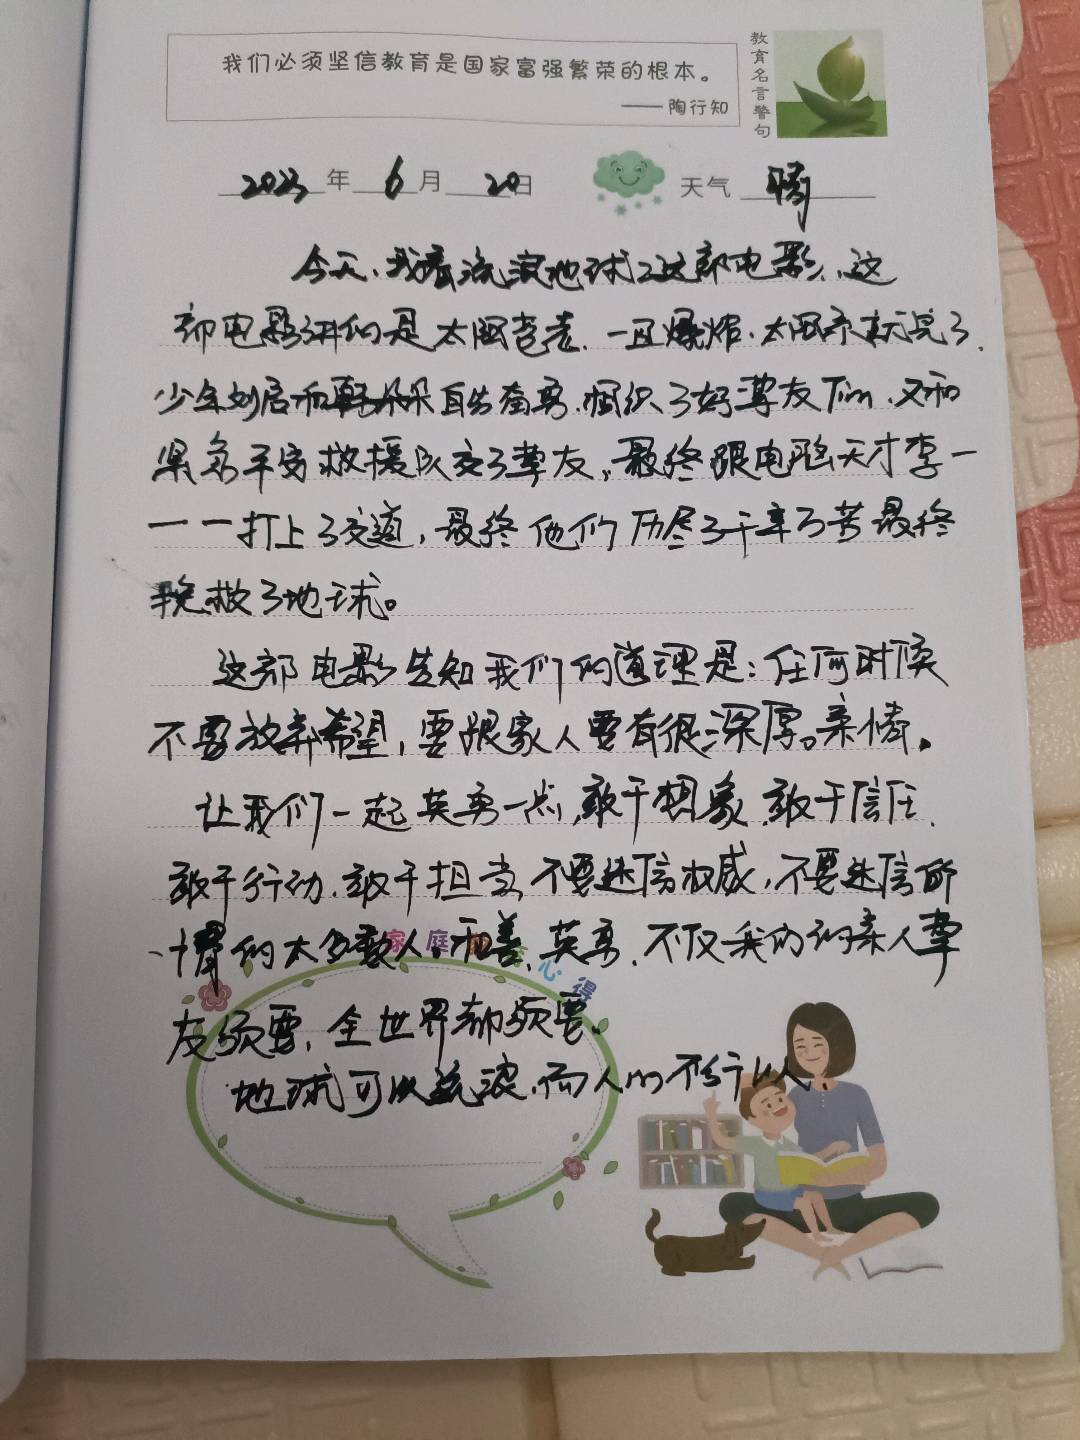 我们必须坚信教育是国家富强繁荣的根本。
——陶行知
教育名言警句
2023年6月20日 天气 晴
今天,我看流浪地球2这部电影,这
部电影讲的是太阳危老,一旦爆炸,太阳系就完了,
少年刘启和韩朵朵自告奋勇,组织了好挚友Tim,又和
果务平安救援队交了挚友,最终跟电脑天才李一
一一打上了交道,最终他们历尽了千辛万苦最终
挽救了地球。
这部电影告知我们的道理是:任何时候
不要放弃希望,要跟家人要有很深厚。亲情。
让我们一起英勇一点,敢于想象,敢于信任,
敢于行动,敢于担当,不要迷信权威,不要迷信所
谓的大多数人。和善、英勇,不仅我的的亲人挚
友须要,全世界都须要。
地球可以流浪,而人的不行
家庭 心得